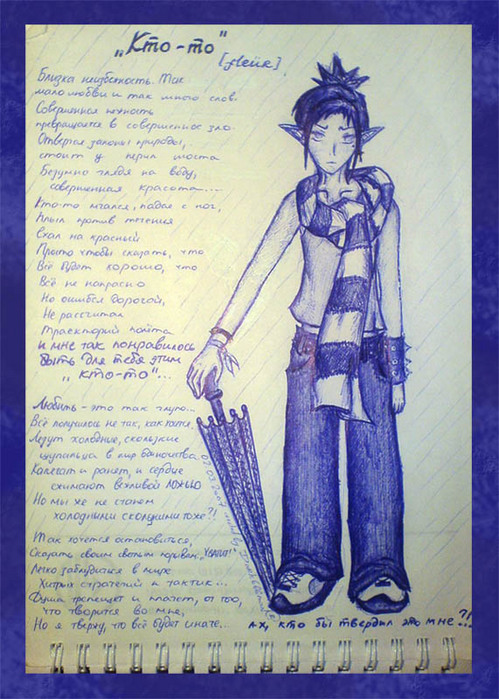 „Кто-то"
[Flёur]
Близка неизбежность. Так
мало любви и так много слов.
Совершенная нежность
превращается в совершенное зло.
Отвергая законы природы,
стоит у перил моста
Безумно глядя на воду,
совершенная красота...
Кто-то мчался, падая с ног,
Плыл против течения
Ехал на красный
Просто чтобы сказать, что
Всё будет хорошо, что
Всё не напрасно
Но ошибся дорогой,
Не рассчитал
траекторий полёта
И мне так понравилось
быть для тебя этим
„кто-то"...
Любить - это так глупо...
Всё получилось не так, как хотел.
Лезут холодные, скользкие
щупальца в мир
Калечат и ранят, и сердце
сжимают вежливой ложью
Но мы же не станем
холодными скользкими тоже?!
Так хочется остановиться,
Сказать своим святым порывам: „Хватит!"
Легко заблудиться в мире
Хитрых стратегий и тактик...
Душа трепещет и плачет, от того,
что творится во мне,
Но я твержу, что всё будет иначе...
Ах, кто бы твердил это мне...?!